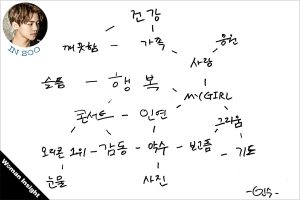 건강
깨끗함 - 가족
응원
사랑
슬픔 - 행복
MYGIRL
콘서트 - 인연
그리움
오리콘 1위 - 감동 - 약속 - 보고픔 - 기도
눈물
사진
-인수-
IN SOO
Woman Insight